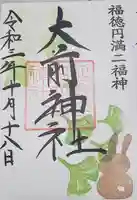 福徳円満二福神
大前神社
令和二年十月十八日